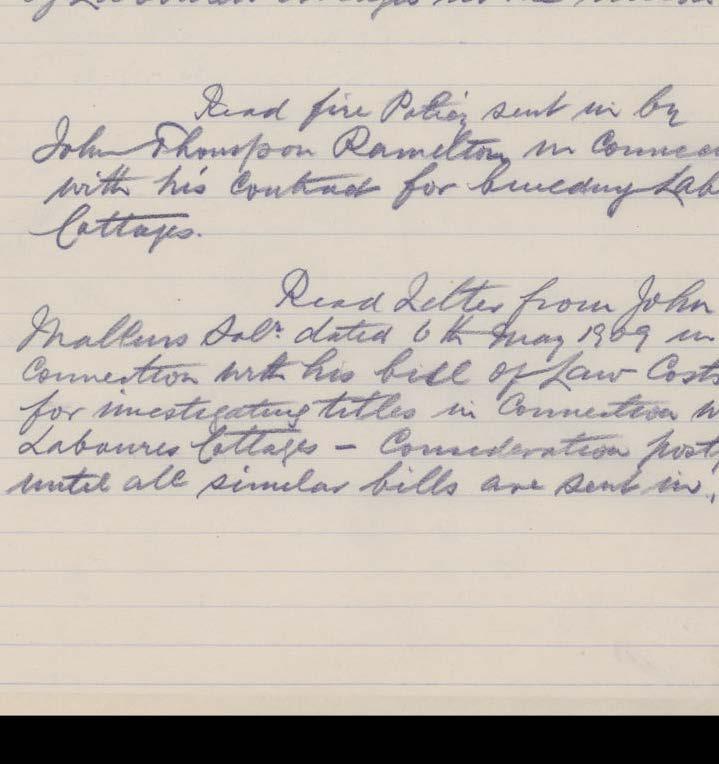 Read fire Policy sent in by
John Thompson Ramelton in Connec
with his Contract for building Lab
Cottages.
Read Letter from John
Mackens Solr. dated 6th May 1909 in
Connection with his bill of Law Costs
for investigating titles in Connection w
Laboures Cottages - Consideration post
until all similar bills are sent in.